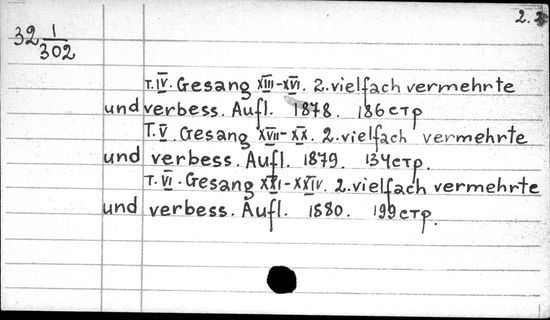 2.
32 1/302
Т. IV. Gesang XIII-XVI. 2. vielfach vermehrte
und verbess. Aufl. 1878. 186 стр
Т. V. Gesang XVII-XX. 2. vielfach vermehrte
und verbess. Aufl. 1879. 134 стр.
Т. VI. Gesang XXI-XXIV. 2. vielfach vermehrte
und verbess. Aufl. 1880. 199 стр.